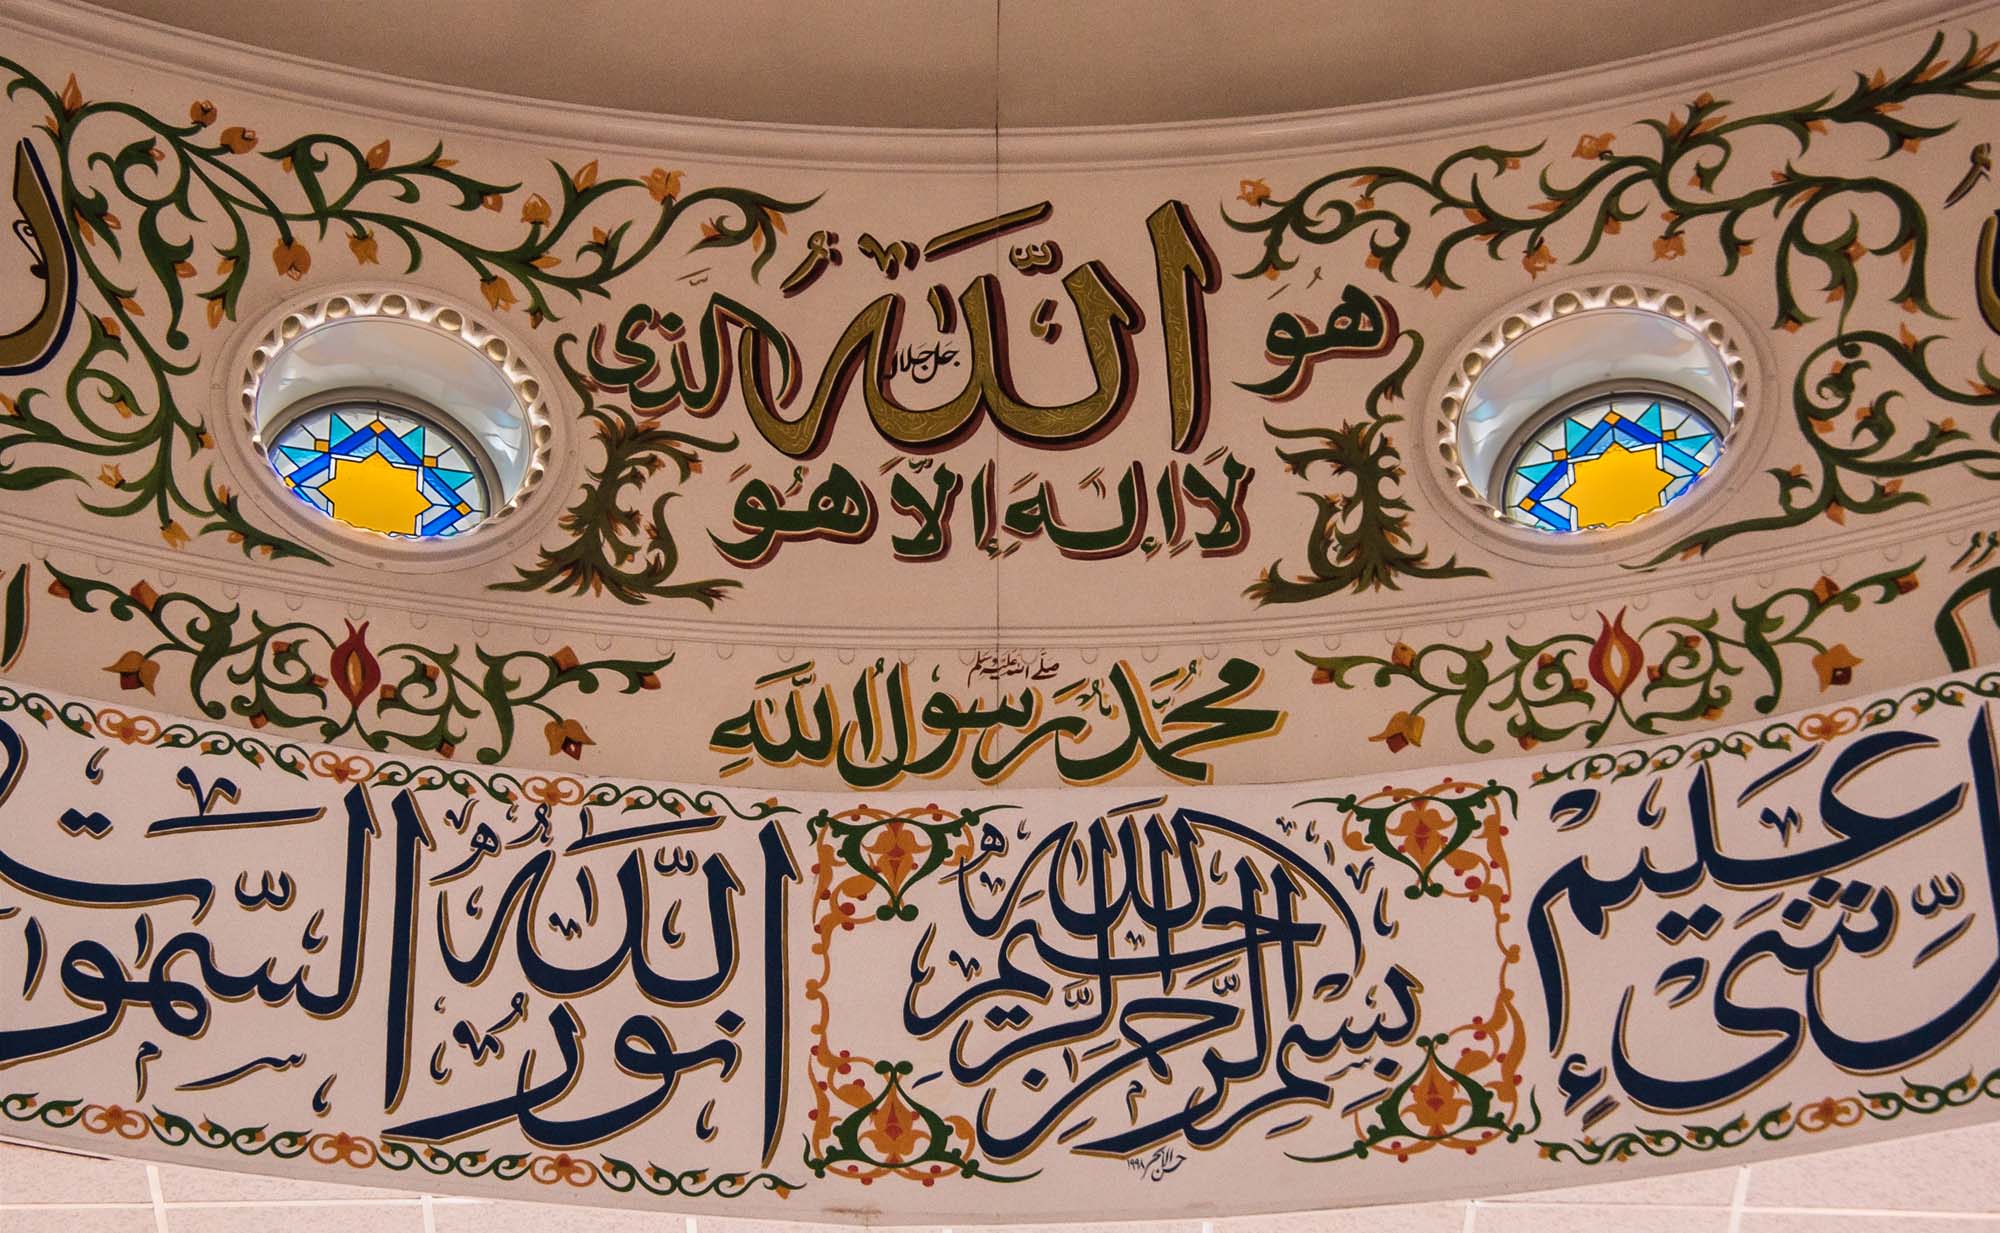 هُوَ اللَّهُ الَّذِي
جل جلاله
لَا إِلَٰهَ إِلَّا هُوَ
صلى الله عليه وسلم
مُحَمَّد رَسُولُ اللَّهِ
بِسْمِ اللهِ الرَّحْمٰنِ الرَّحِيمِ
اللَّهُ نُورُ السَّمٰوَاتِ
شَيْءٍ عَلِيمٌ
١٩٩٨